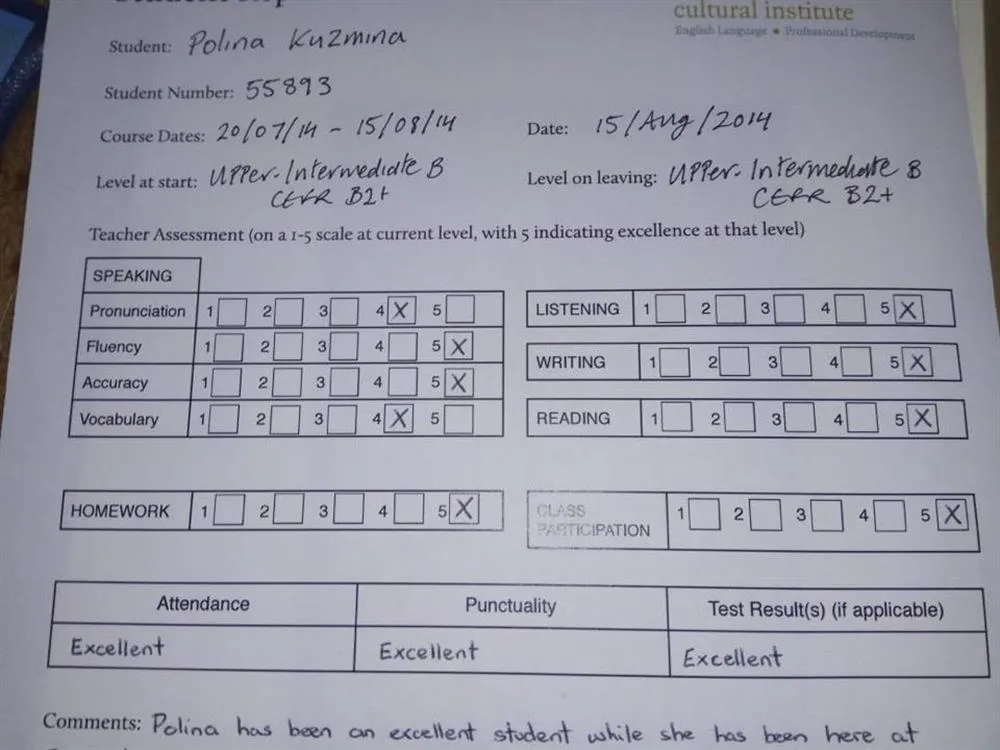 cultural institute
English Language • Professional Development
Student: Polina Kuzmina
Student Number: 55893
Course Dates: 20/07/14 - 15/08/14 Date: 15/Aug/2014
Level at start: Upper-Intermediate B Level on leaving: Upper-Intermediate B
CEFR B2+ CEFR B2+
Teacher Assessment (on a 1-5 scale at current level, with 5 indicating excellence at that level)
SPEAKING
Pronunciation 1 2 3 4 X 5 LISTENING 1 2 3 4 5 X
Fluency 1 2 3 4 5 X
WRITING 1 2 3 4 5 X
Accuracy 1 2 3 4 5 X
Vocabulary 1 2 3 4 X 5 READING 1 2 3 4 5 X
HOMEWORK 1 2 3 4 5 X CLASS PARTICIPATION 1 2 3 4 5 X
Attendance Punctuality Test Result(s) (if applicable)
Excellent Excellent Excellent
Comments: Polina has been an excellent student while she has been here at